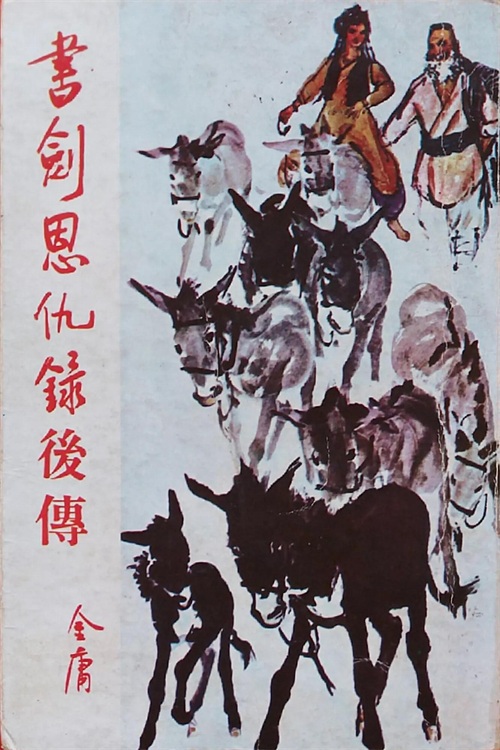 書劍恩仇録後傳
金庸